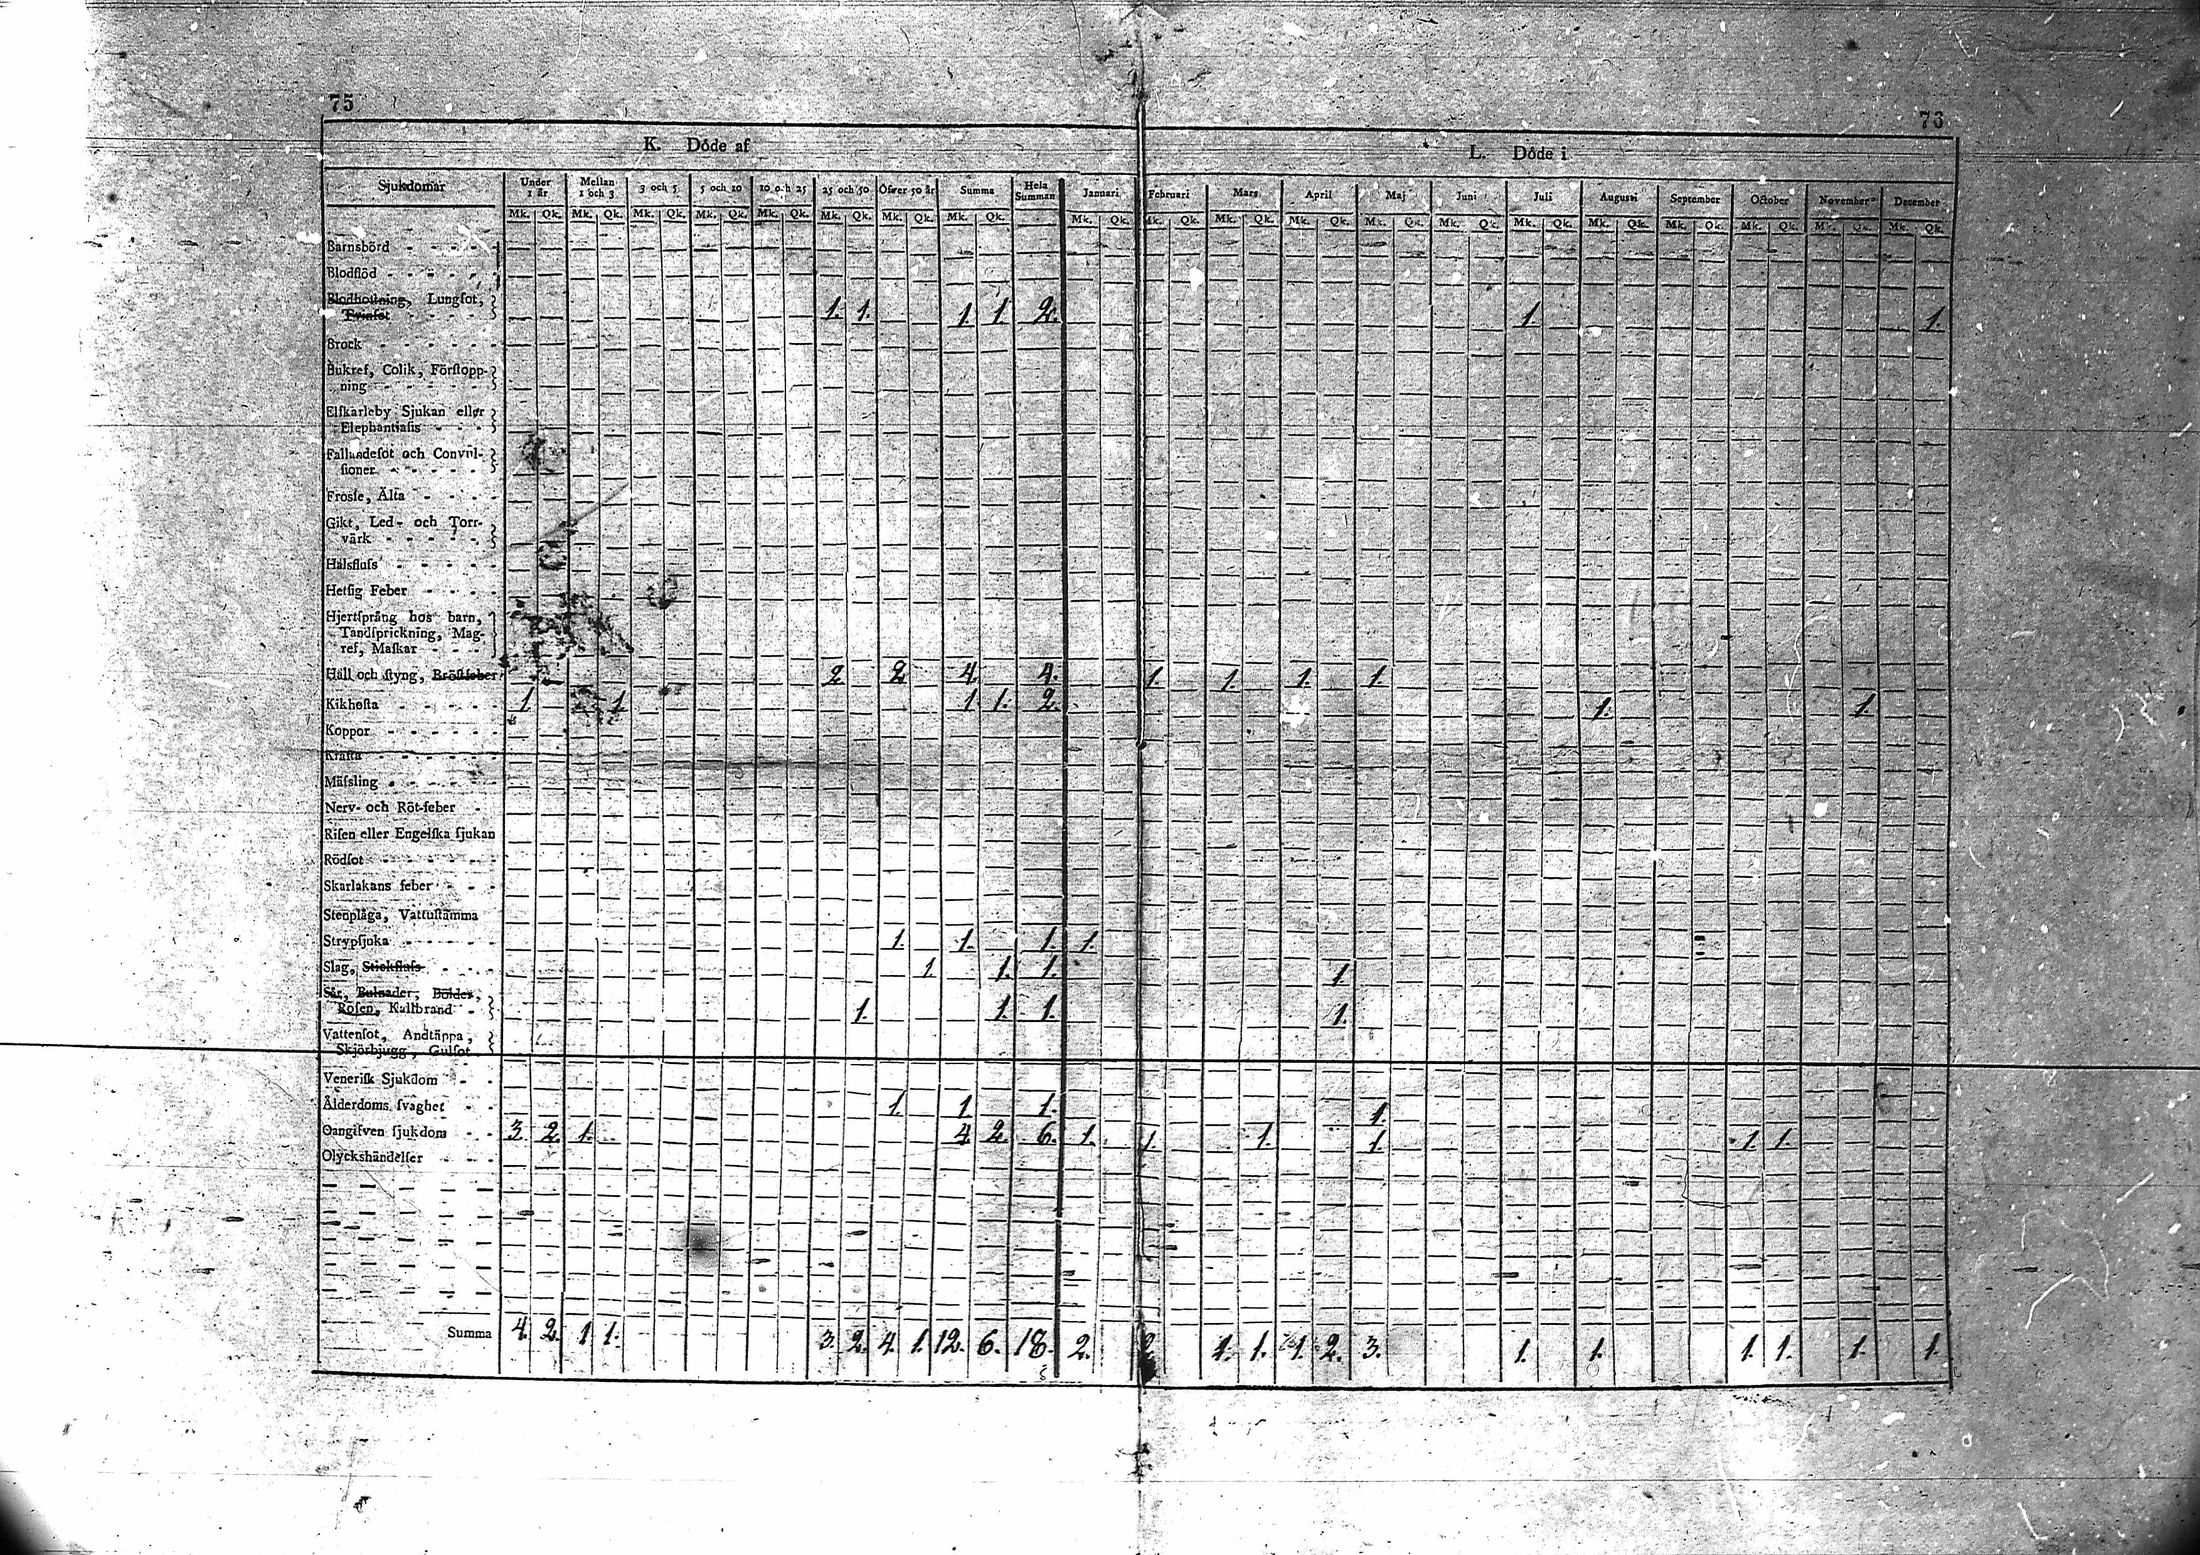 75
76
K. Döde af
L. Döde i
Sjukdomar Under 1 år Mellan 1 och 3 3 och 5 5 och 10 10 och 25 25 och 50 Öfver 50 år Summa Hela Summan Januari Februari Mars April Maj Juni Juli Augusti September October November December
Mk. Qk. Mk. Qk. Mk. Qk. Mk. Qk. Mk. Qk. Mk. Qk. Mk. Qk. Mk. Qk. Mk. Qk. Mk. Qk. Mk. Qk. Mk. Qk. Mk. Qk. Mk. Qk. Mk. Qk. Mk. Qk. Mk. Qk. Mk. Qk. Mk. Qk. Mk. Qk.
Barnsbörd
Blodflöd
Blodhostning, Lungſot,
Tvinſot 1. 1. 1. 1. 2. 1. 1.
Brock
Bukref, Colik, Förſtopp-
ning
Elſkarleby Sjukan eller
Elephantiaſis
Fallandeſot och Convul-
ſioner
Frosſe, Älta
Gikt, Led- och Torr-
värk
Halsfluſs
Hetſig Feber
Hjertſprång hos barn,
Tandſprickning, Mag-
ref, Maſkar
Håll och ſtyng, Bröſtfeber 2 2 4 4. 1. 1. 1. 1.
Kikhoſta 1. 1. 1 1. 2. 1. 1.
Koppor
Kräfta
Mäſsling
Nerv- och Röt-feber
Riſen eller Engelſka ſjukan
Rödſot
Skarlakans feber
Stenplåga, Vattuſtämma
Strypſjuka 1. 1. 1. 1.
Slag, Stickfluſs 1. 1. 1. 1.
Sår, Bulnader, Bölder,
Roſen, Kallbrand 1. 1. 1. 1.
Vattenſot, Andtäppa,
Skjörbjugg, Gulſot
Veneriſk Sjukdom
Ålderdoms ſvaghet 1. 1 1. 1.
Oangifven ſjukdom 3 2. 1. 4 2. 6. 1. 1. 1. 1. 1. 1.
Olyckshändelſer
Summa 4. 2. 1 1. 3. 2. 4. 1. 12. 6. 18. 2. 2. 1. 1. 1. 2. 3. 1. 1. 1. 1. 1. 1.